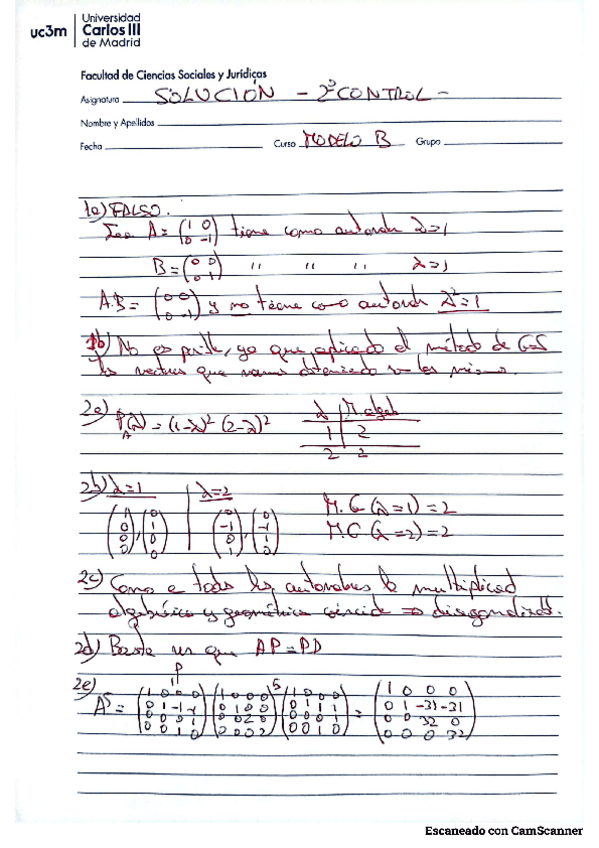 uc3m Universidad Carlos III de Madrid
Facultad de Ciencias Sociales y Jurídicas
Asignatura SOLUCIÓN - 2º CONTROL -
Nombre y Apellidos
Fecha Curso MODELO B Grupo
1a) FALSO.
Sea A = (1 0; 0 -1) tiene como autovalor λ=1
B = (0 0; 0 1) " " " λ=1
A.B = (0 0; 0 -1) y no tiene como autovalor λ²=1
1b) No es , ya que aplicado el método de G-S
los vectores que vamos son los mismo.
2a) P_A(λ) = (1-λ)² (2-λ)² λ M. algeb
1 2
2 2
2b) λ=1 λ=2
(1 0 0 0), (0 1 0 0) (0 -1 0 1), (0 -1 1 0) M.G (λ=1) = 2
M.G (λ=2) = 2
2c) Como e todos los autovalores la multiplicad
algebráica y geométrica coincide ⇒ diagonalizab.
2d) Basta ver que AP=PD
P
2e) A⁵ = (1 0 0 0; 0 1 -1 -1; 0 0 0 1; 0 0 1 0) (1 0 0 0; 0 1 0 0; 0 0 2 0; 0 0 0 2)⁵ (1 0 0 0; 0 1 1 1; 0 0 0 1; 0 0 1 0) = (1 0 0 0; 0 1 -31 -31; 0 0 32 0; 0 0 0 32)
Escaneado con CamScanner